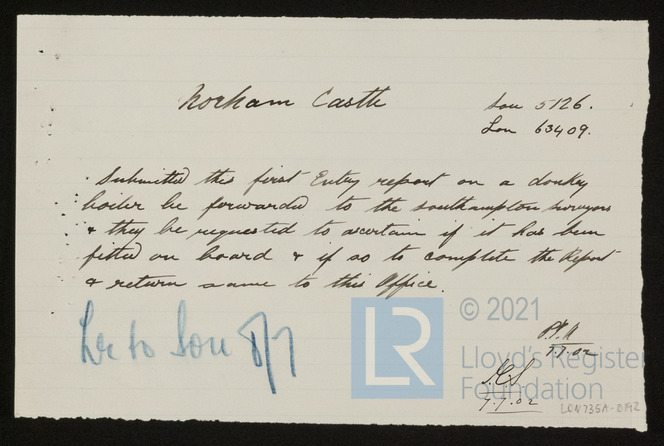 Norham Castle
Sou 5126.
Lon 63409.
Submitted this first Entry report on a donkey
boiler be forwarded to the Southampton Surveyors
& they be requested to ascertain if it has been
fitted on board & if so to complete the Report
& return same to this Office.
Lre to Sou 8/7
7.7.02
7.7.02
LR
© 2021
Lloyd's Register
Foundation
LON735A-0192